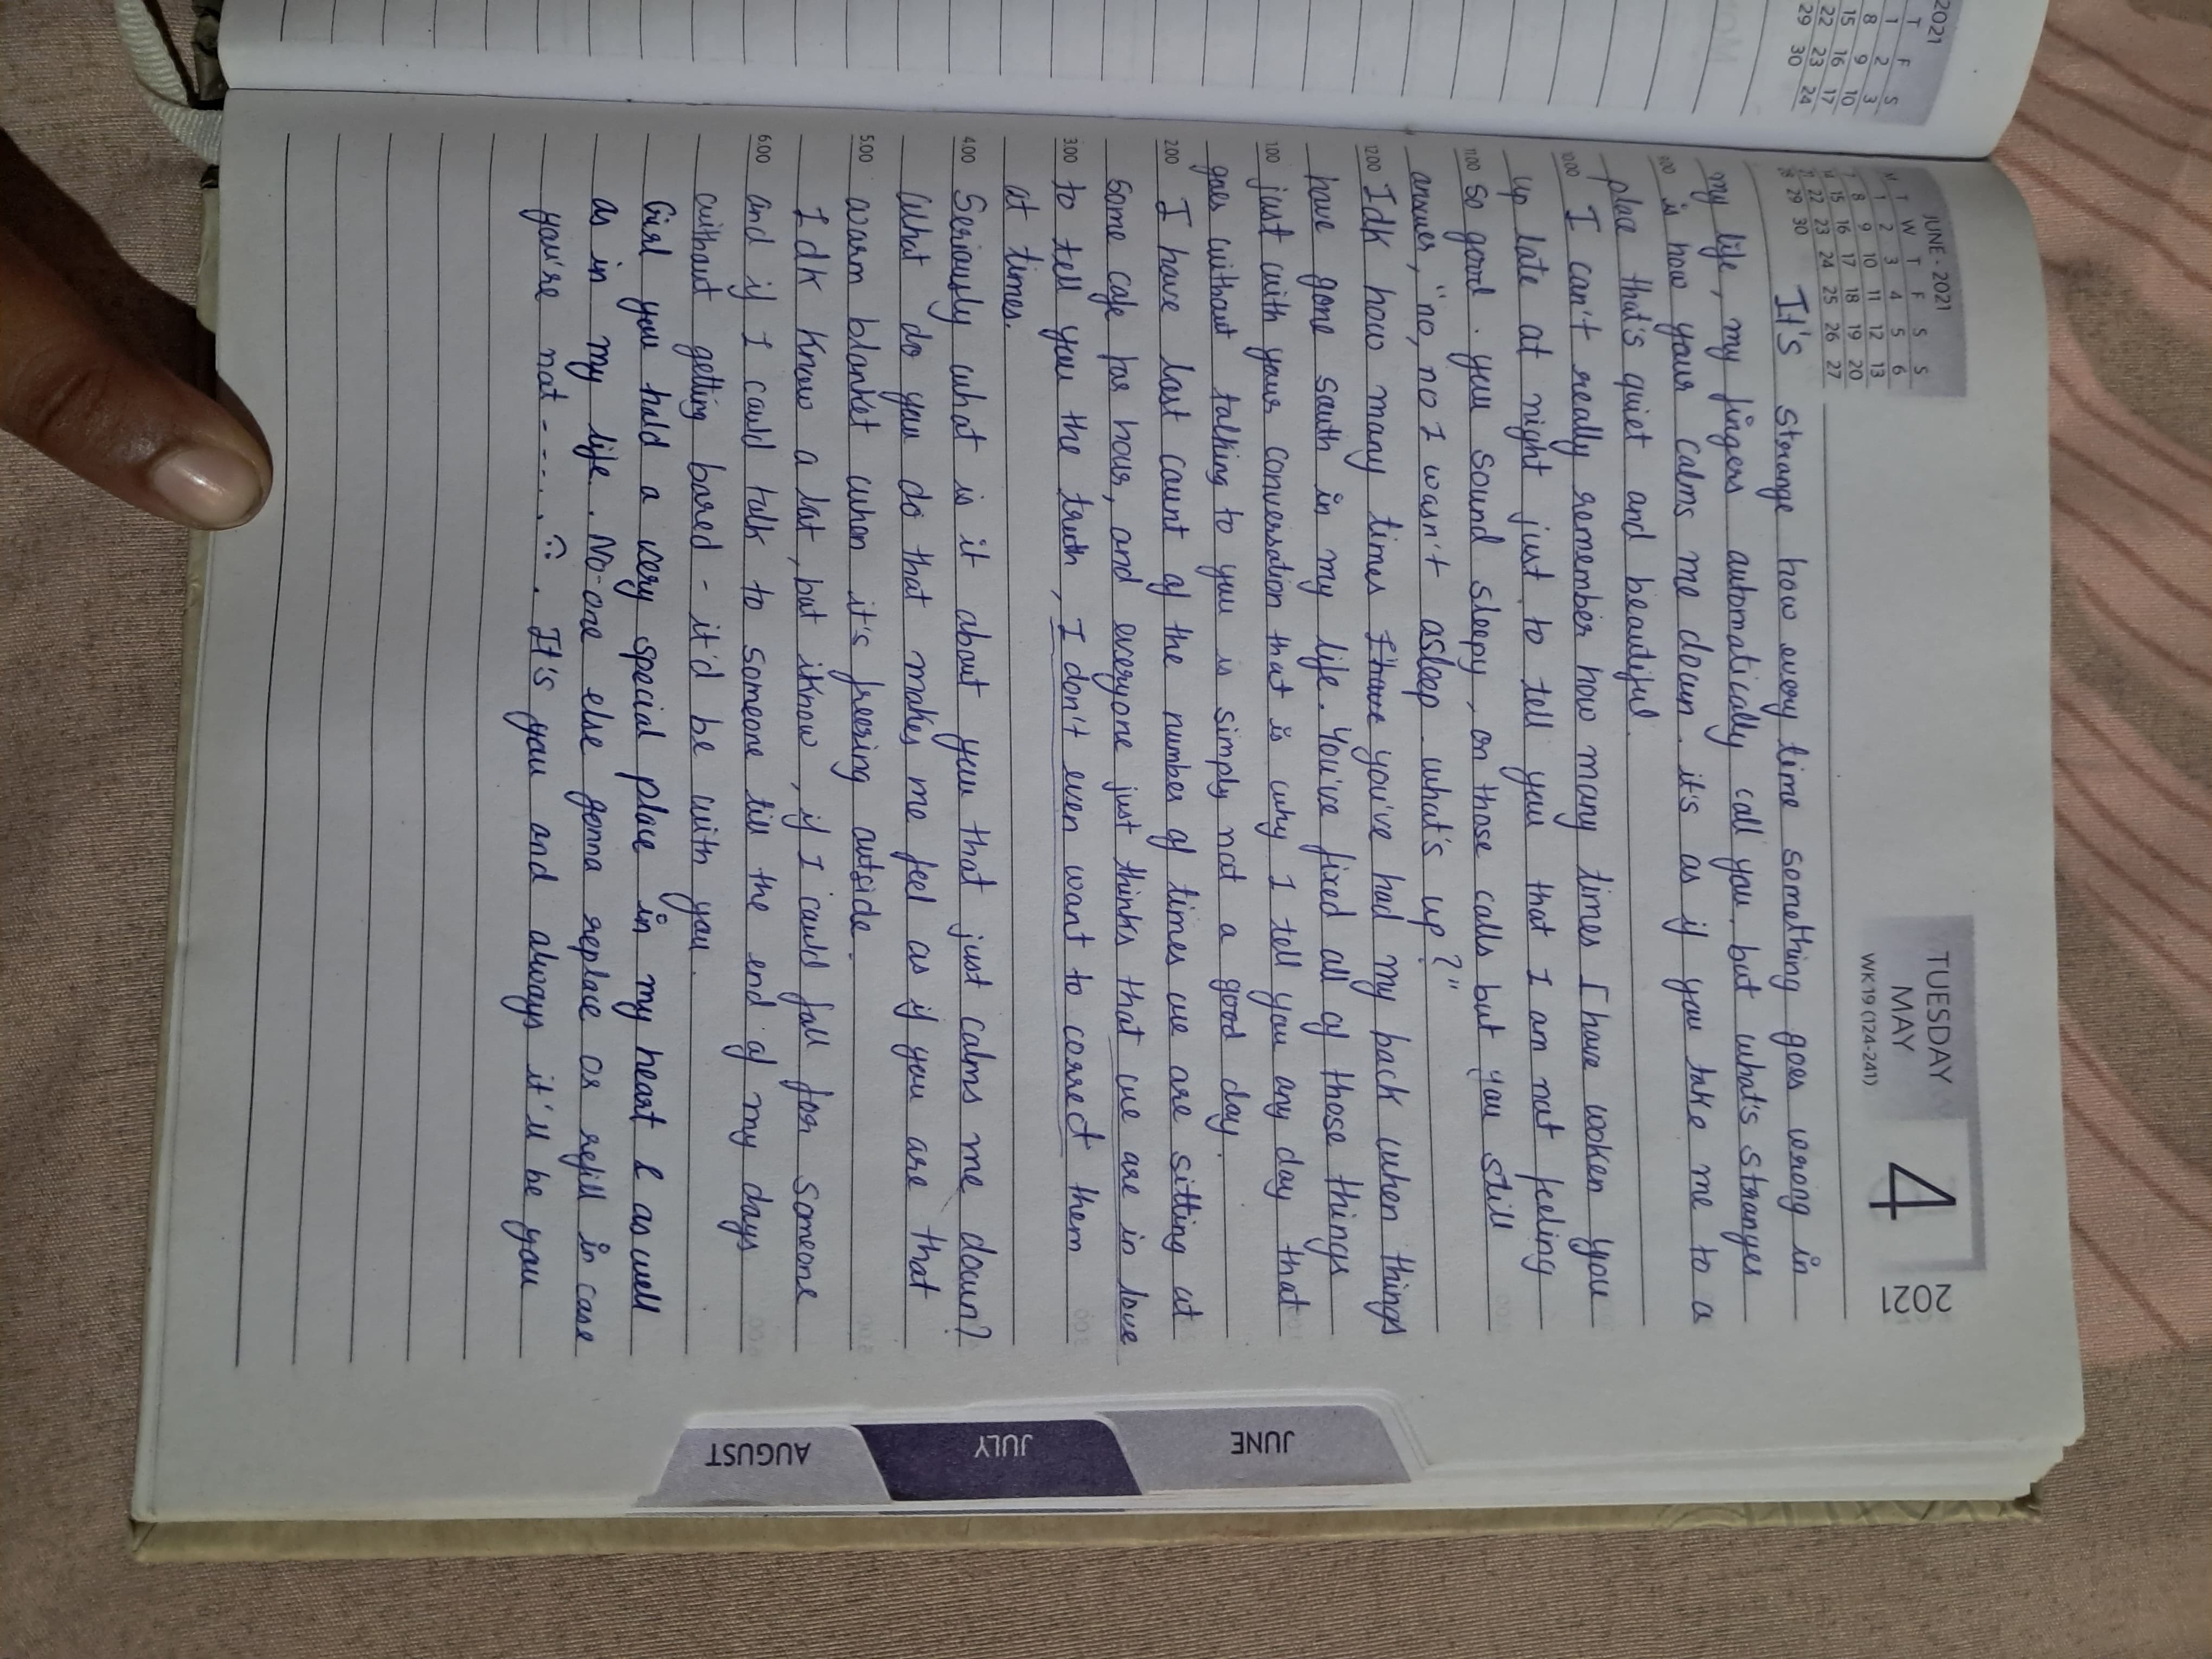 2021
T F S
1 2 3
8 9 10
15 16 17
22 23 24
29 30
JUNE - 2021
T W T F S S
1 2 3 4 5 6
8 9 10 11 12 13
15 16 17 18 19 20
22 23 24 25 26 27
29 30
TUESDAY
MAY
WK19 (124-241)
4
2021
It's strange how every time something goes wrong in
my life, my fingers automatically call you, but what's stranger
is how your calms me down. it's as if you take me to a
place that's quiet and beautiful.
10.00 I can't really remember how many times I have woken you
up late at night just to tell you that I am not feeling
11.00 so good. you sound sleepy, on those calls but you still
answer, "no, no I wasn't asleep. what's up?"
12.00 Idk how many times I have you've had my back when things
have gone south in my life. You've fixed all of those things
1.00 just with your conversation that is why I tell you any day that
goes without talking to you is simply not a good day.
2.00 I have lost count of the number of times we are sitting at
some cafe for hours, and everyone just thinks that we are in love
3.00 to tell you the truth, I don't even want to correct them
at times.
4.00 Seriously what is it about you that just calms me down?
What do you do that makes me feel as if you are that
5.00 warm blanket when it's freezing outside.
Idk know a lot, but iknow, if I could fall for someone
6.00 and if I could talk to someone till the end of my days
without getting bored - it'd be with you.
Girl you hold a very special place in my heart & as well
as in my life. No-one else gonna replace or refill in case
you're not - - - . . . It's you and always it'll be you
JUNE
JULY
AUGUST